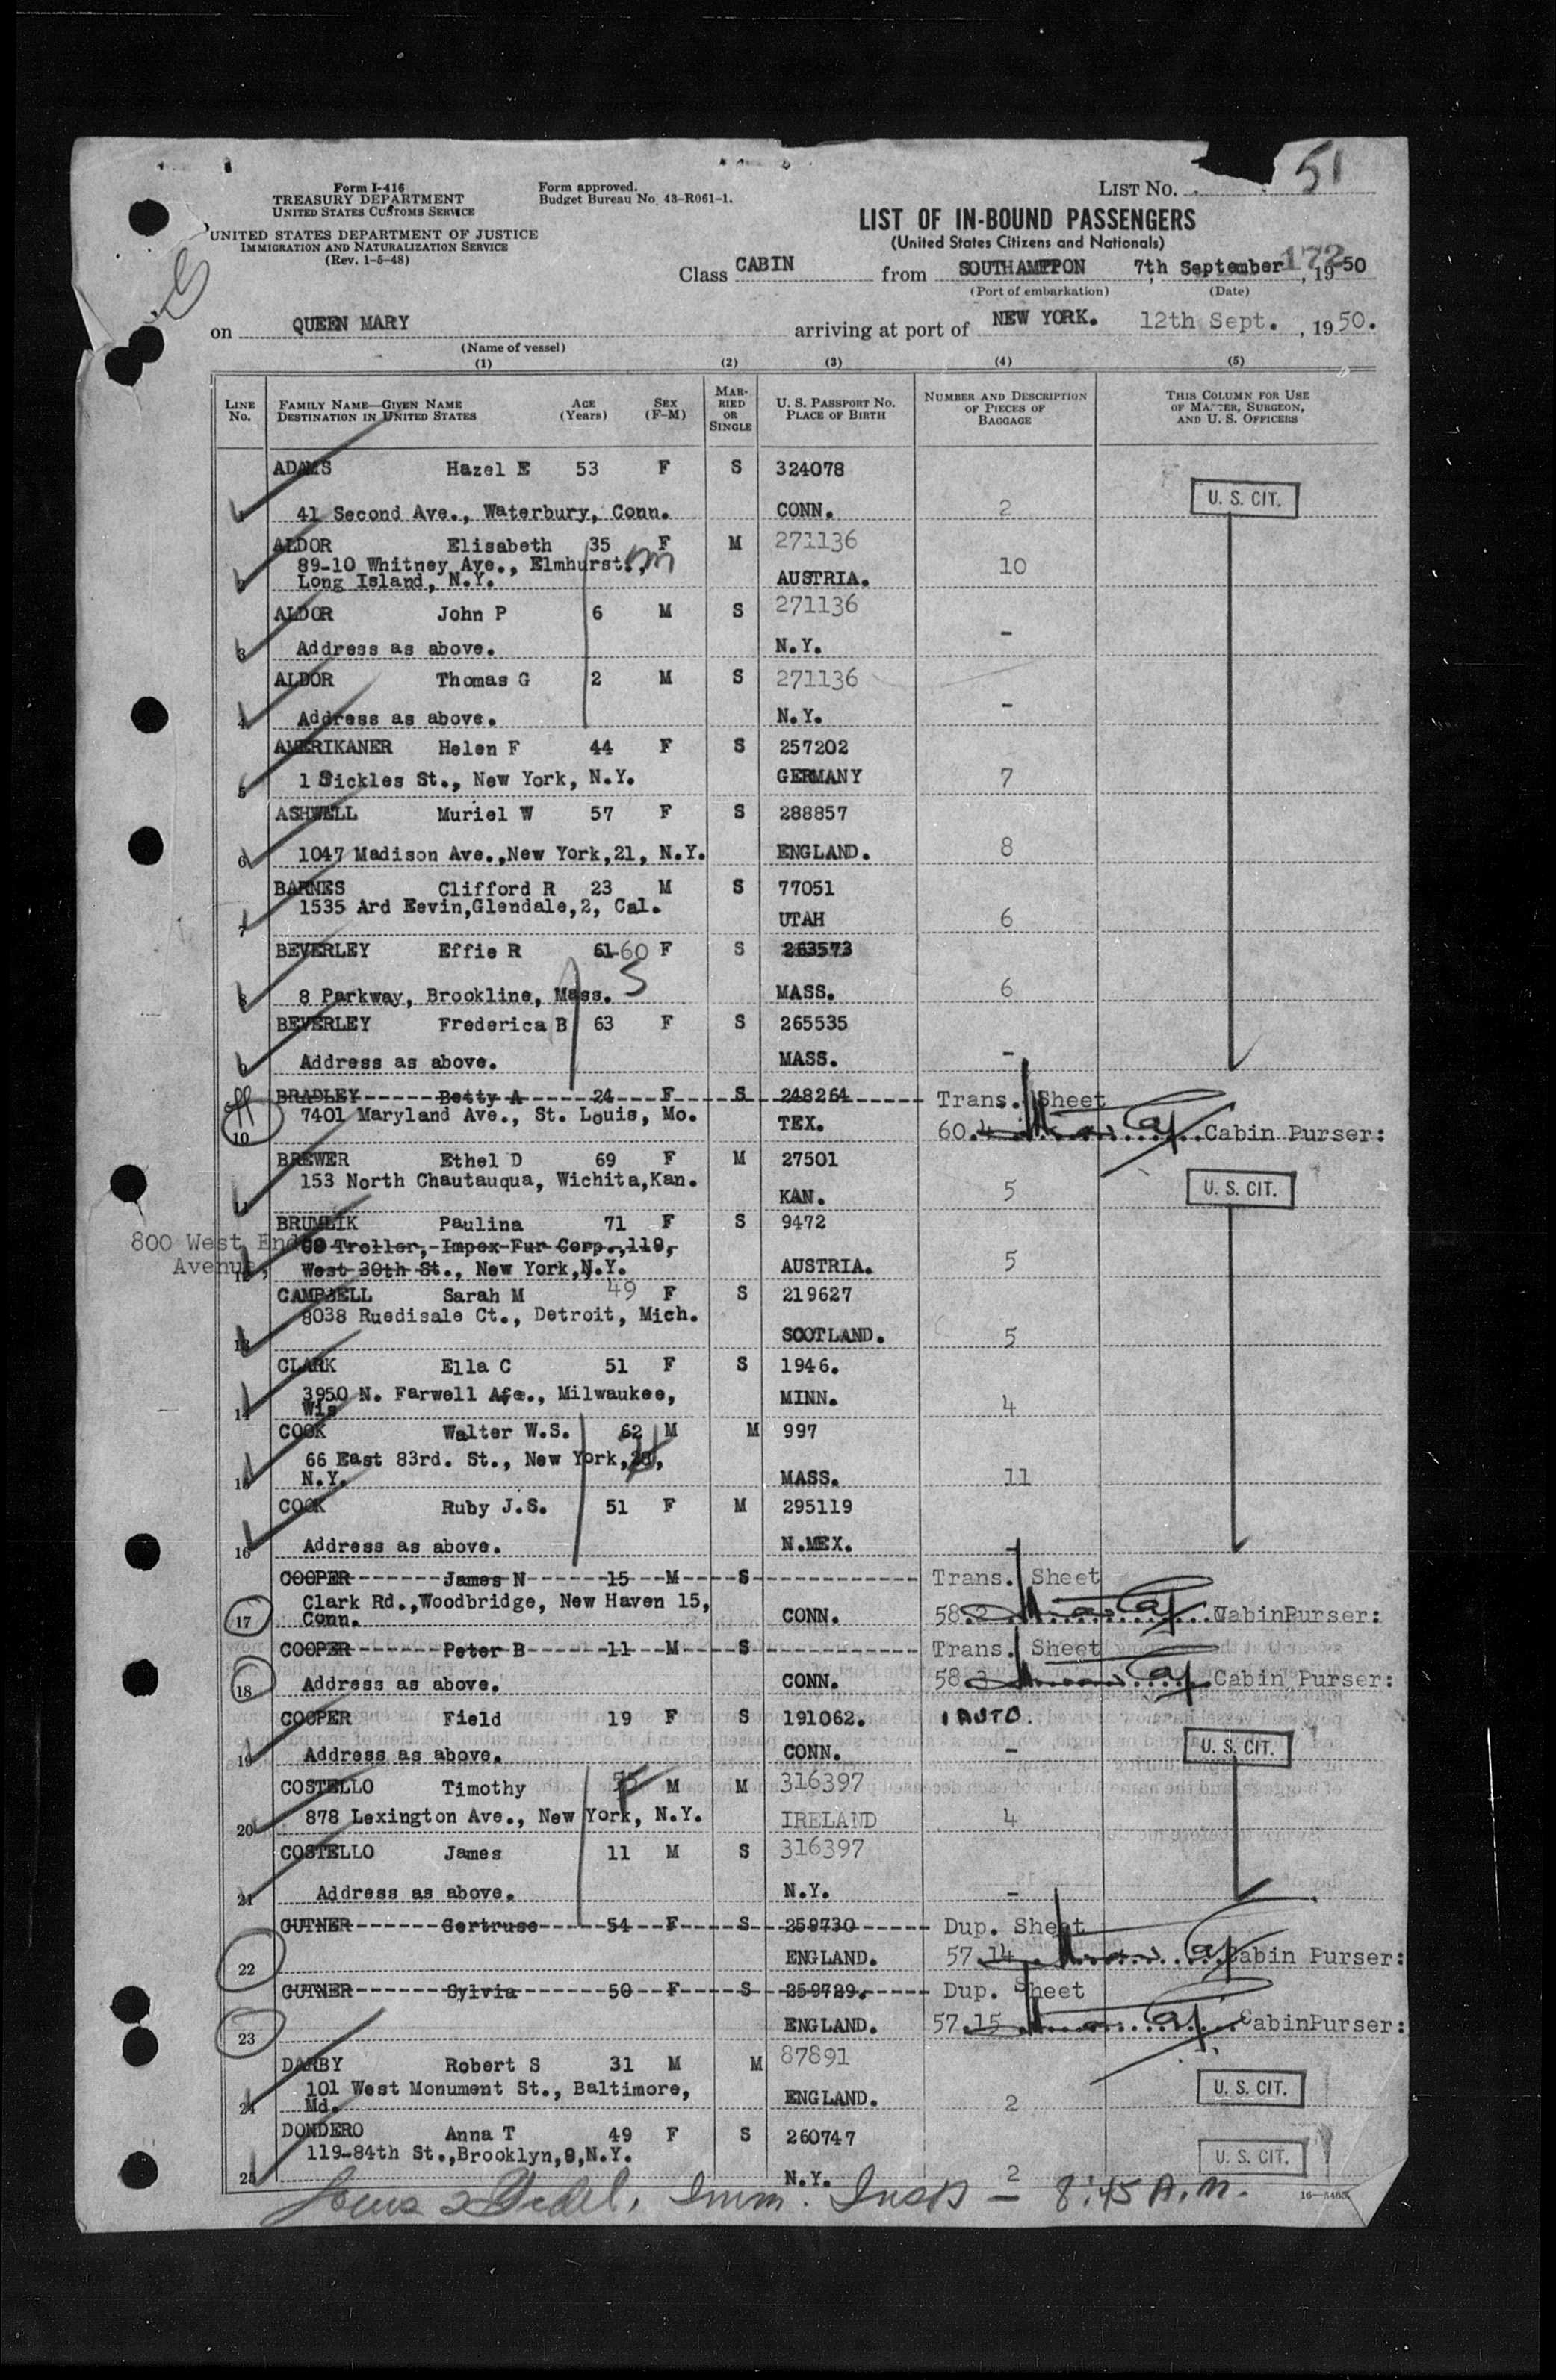 51
LIST NO.
Form I-416
TREASURY DEPARTMENT
UNITED STATES CUSTOMS SERVICE
Form approved.
Budget Bureau No. 43-R061-1.
UNITED STATES DEPARTMENT OF JUSTICE
IMMIGRATION AND NATURALIZATION SERVICE
(Rev. 1-5-48)
LIST OF IN-BOUND PASSENGERS
(United States Citizens and Nationals)
172
Class CABIN from SOUTHAMPTON 7th September, 1950
(Port of embarkation) (Date)
on QUEEN MARY arriving at port of NEW YORK. 12th Sept., 1950.
(Name of vessel)
(1) (2) (3) (4) (5)
LINE NO. FAMILY NAME—GIVEN NAME DESTINATION IN UNITED STATES AGE (Years) SEX (F-M) MARRIED OR SINGLE U. S. PASSPORT NO. PLACE OF BIRTH NUMBER AND DESCRIPTION OF PIECES OF BAGGAGE THIS COLUMN FOR USE OF MASTER, SURGEON, AND U. S. OFFICERS
ADAMS Hazel E 53 F S 324078
1 41 Second Ave., Waterbury, Conn. CONN. 2 U. S. CIT.
ALDOR Elisabeth 35 F M 271136
89-10 Whitney Ave., Elmhurst., 10
2 Long Island, N.Y. AUSTRIA.
ALDOR John P 6 M S 271136
3 Address as above. N.Y. -
ALDOR Thomas G 2 M S 271136
4 Address as above. N.Y. -
AMERIKANER Helen F 44 F S 257202
5 1 Sickles St., New York, N.Y. GERMANY 7
ASHWELL Muriel W 57 F S 288857
6 1047 Madison Ave.,New York,21, N.Y. ENGLAND. 8
BARNES Clifford R 23 M S 77051
1535 Ard Eevin,Glendale,2, Cal.
7 UTAH 6
BEVERLEY Effie R 61 60 F S 263573
8 8 Parkway, Brookline, Mass. MASS. 6
BEVERLEY Frederica B 63 F S 265535
9 Address as above. MASS. -
BRADLEY Betty A 24 F S 248264 Trans. Sheet
7401 Maryland Ave., St. Louis, Mo.
10 TEX. 60.4 Cabin Purser:
BREWER Ethel D 69 F M 27501
153 North Chautauqua, Wichita,Kan.
11 KAN. 5 U. S. CIT.
BRUMLIK Paulina 71 F S 9472
800 West End CO Troller, Impex Fur Corp.,119,
Avenue, 12 West 30th St., New York,N.Y. AUSTRIA. 5
CAMPBELL Sarah M 49 F S 219627
8038 Ruedisale Ct., Detroit, Mich.
13 SCOTLAND. 5
CLARK Ella C 51 F S 1946.
3950 N. Farwell Ave., Milwaukee, MINN.
14 Wis 4
COOK Walter W.S. 62 M M 997
66 East 83rd. St., New York,28,
15 N.Y. MASS. 11
COOK Ruby J.S. 51 F M 295119
16 Address as above. N.MEX. -
COOPER James N 15 M S Trans. Sheet
Clark Rd.,Woodbridge, New Haven 15,
17 Conn. CONN. 58.2 CabinPurser:
COOPER Peter B 11 M S Trans. Sheet
18 Address as above. CONN. 58.3 Cabin Purser:
COOPER Field 19 F S 191062. 1 AUTO.
19 Address as above. CONN. - U. S. CIT.
COSTELLO Timothy 55 M M 316397
20 878 Lexington Ave., New York, N.Y. IRELAND 4
COSTELLO James 11 M S 316397
21 Address as above. N.Y. -
GUTNER Gertruse 54 F S 259730 Dup. Sheet
22 ENGLAND. 57.14 Cabin Purser:
GUTNER Sylvia 50 F S 259729. Dup. Sheet
23 ENGLAND. 57.15 CabinPurser:
DARBY Robert S 31 M M 87891
101 West Monument St., Baltimore,
24 Md. ENGLAND. 2 U. S. CIT.
DONDERO Anna T 49 F S 260747
119-84th St.,Brooklyn,9,N.Y.
25 N.Y. 2 U. S. CIT.
Imm. Insp — 8:45 A.M.